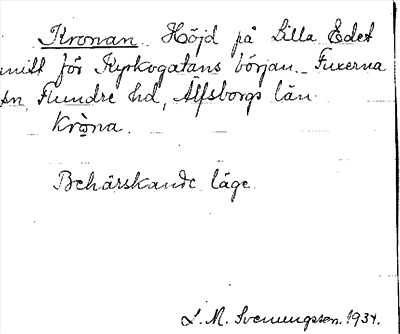 Kronan. Höjd på Lilla Edet
mitt för Kyrkogatans början. Fuxerna
sn, Flundre hd, Älfsborgs län.
Kròna.
Behärskande läge.
L. M. Svenungsson. 1934.